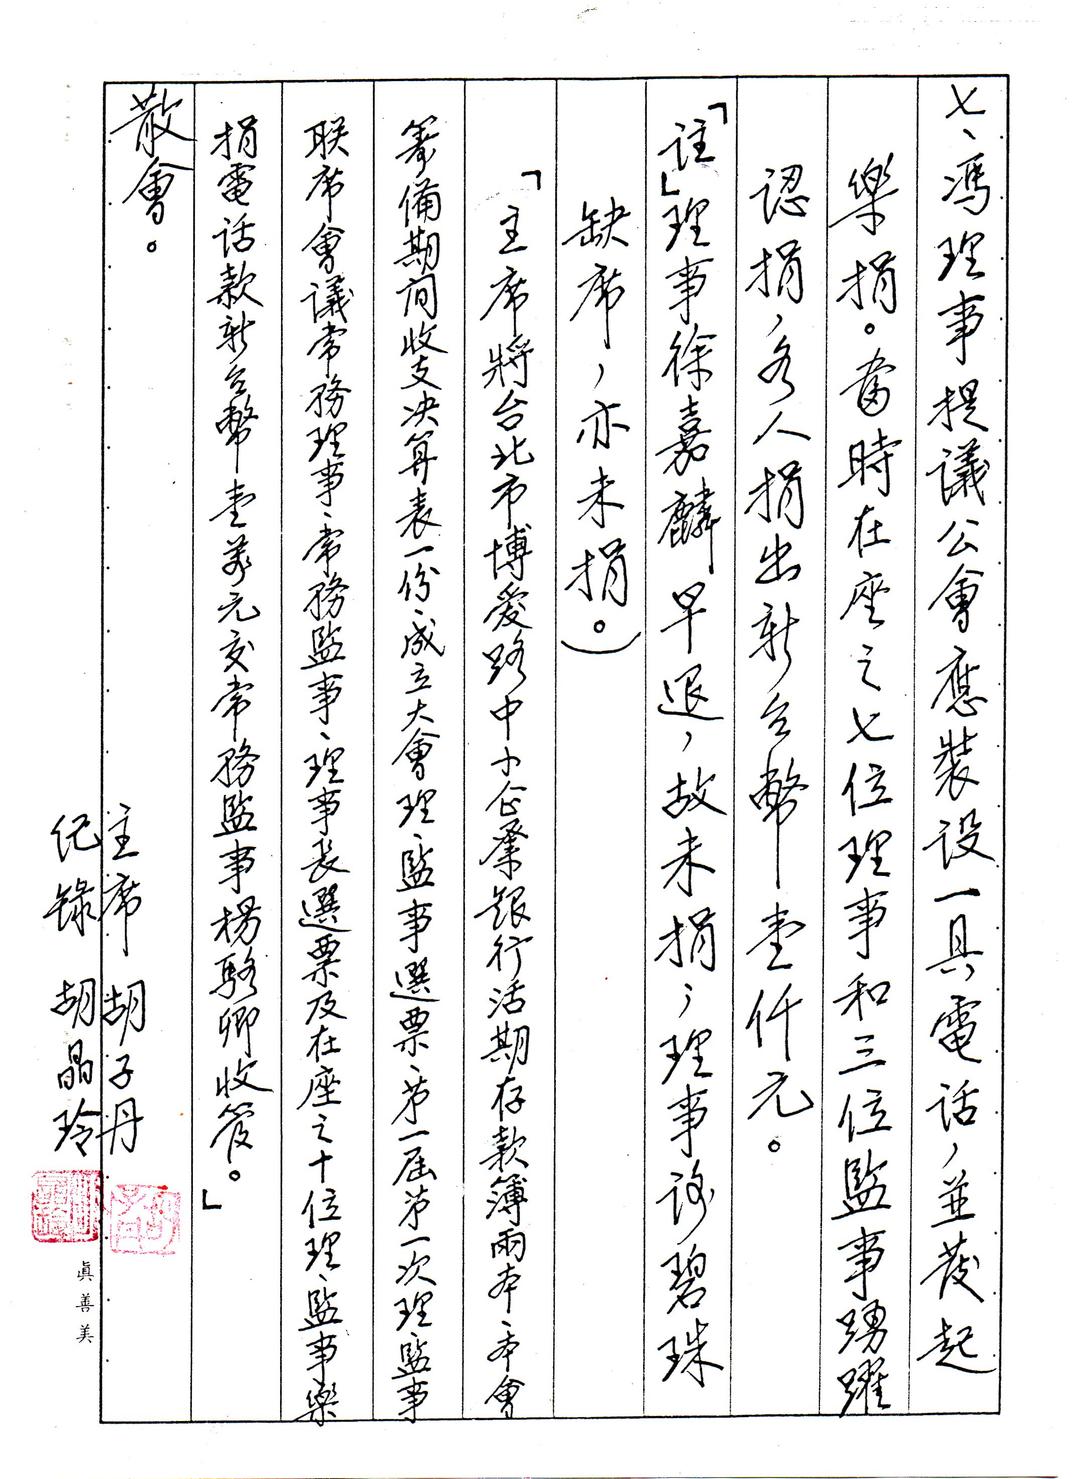 七、馮理事提議公會應裝設一具電話,並發起
樂捐。當時在座之七位理事和三位監事踴躍
認捐,各人捐出新台幣壹仟元。
「註」理事徐嘉麟早退,故未捐;理事碧珠
缺席,亦未捐。)
「主席將台北市博愛路中小企業銀行活期存款簿兩本、本會
籌備期間收支決算表一份、成立大會理、監事選票、第一屆第一次理監事
联席會議常務理事、常務監事、理事長選票及在座之十位理、監事樂
捐電話款新台幣壹萬元交常務監事楊駱卿收管。」
散會。
主席 胡子丹
纪錄 胡晶玲
眞善美